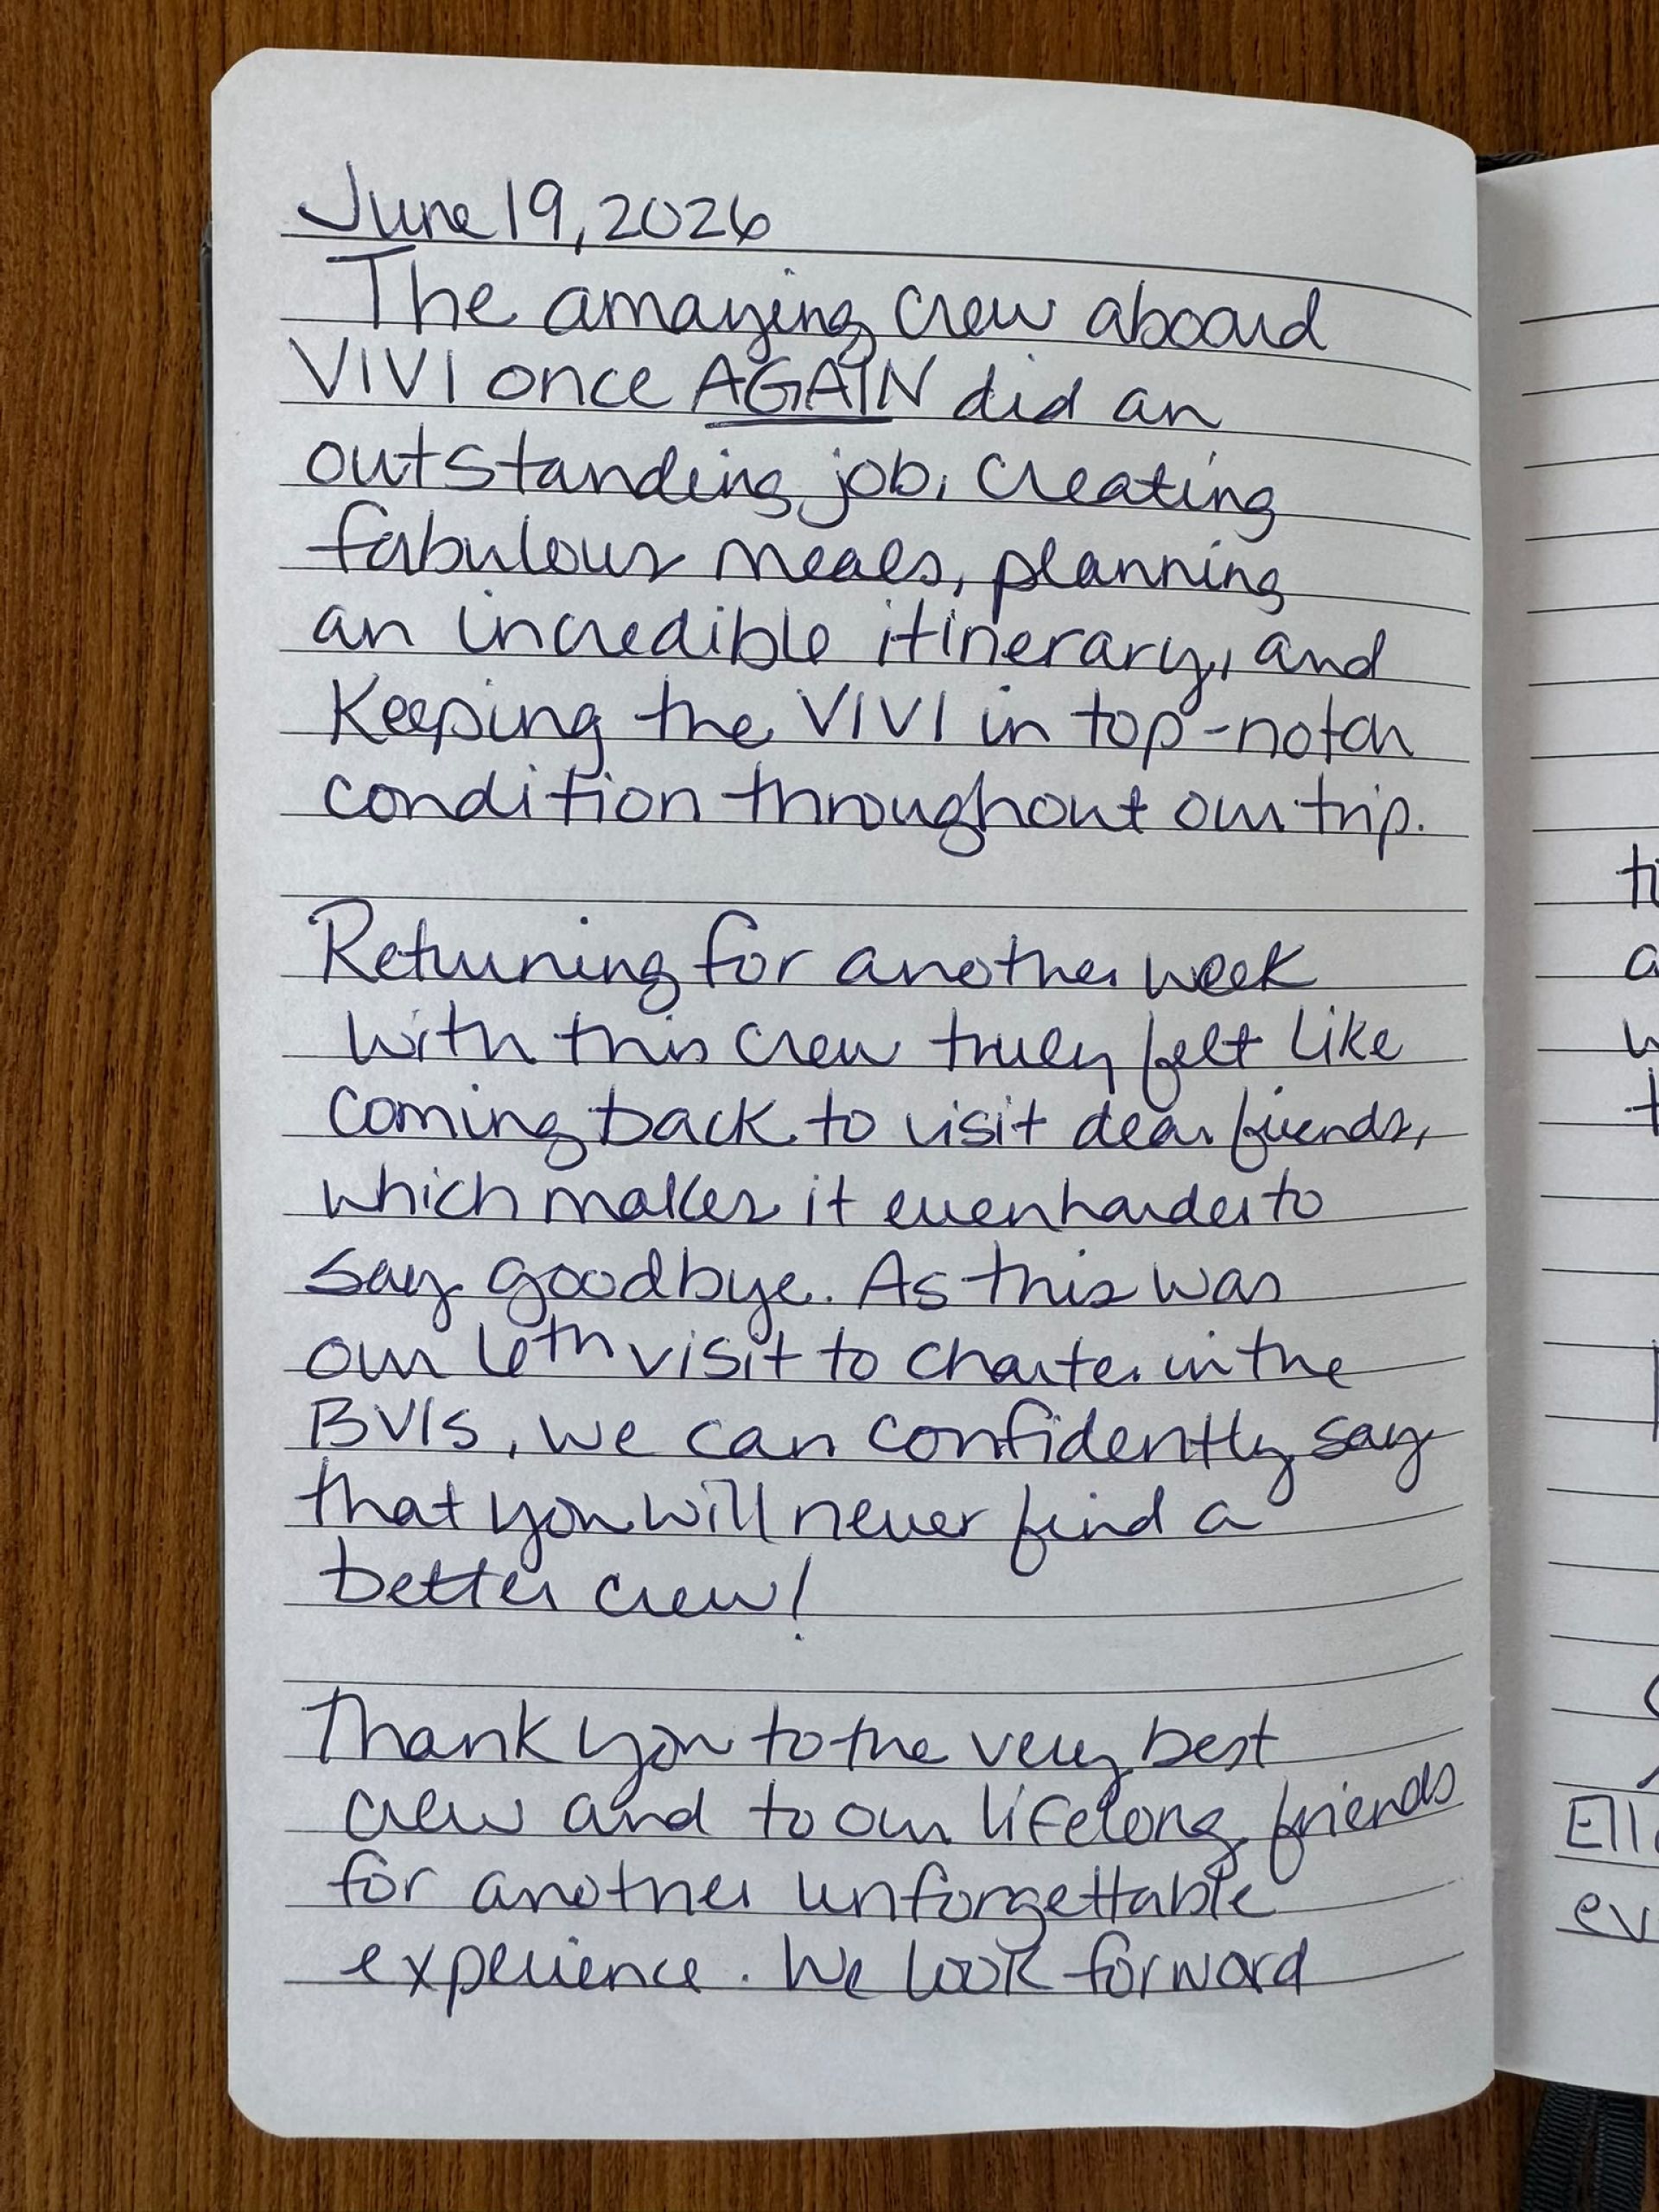 June 19, 2026
The amazing crew aboard
VIVI once AGAIN did an
outstanding job, creating
fabulous meals, planning
an incredible itinerary, and
Keeping the VIVI in top-notch
condition throughout our trip.
Returning for another week
with this crew truly felt like
coming back to visit dear friends,
which makes it even harder to
say goodbye. As this was
our 6th visit to charter in the
BVIs, we can confidently say
that you will never find a
better crew!
Thank you to the very best
crew and to our lifelong friends
for another unforgettable
experience. We look forward